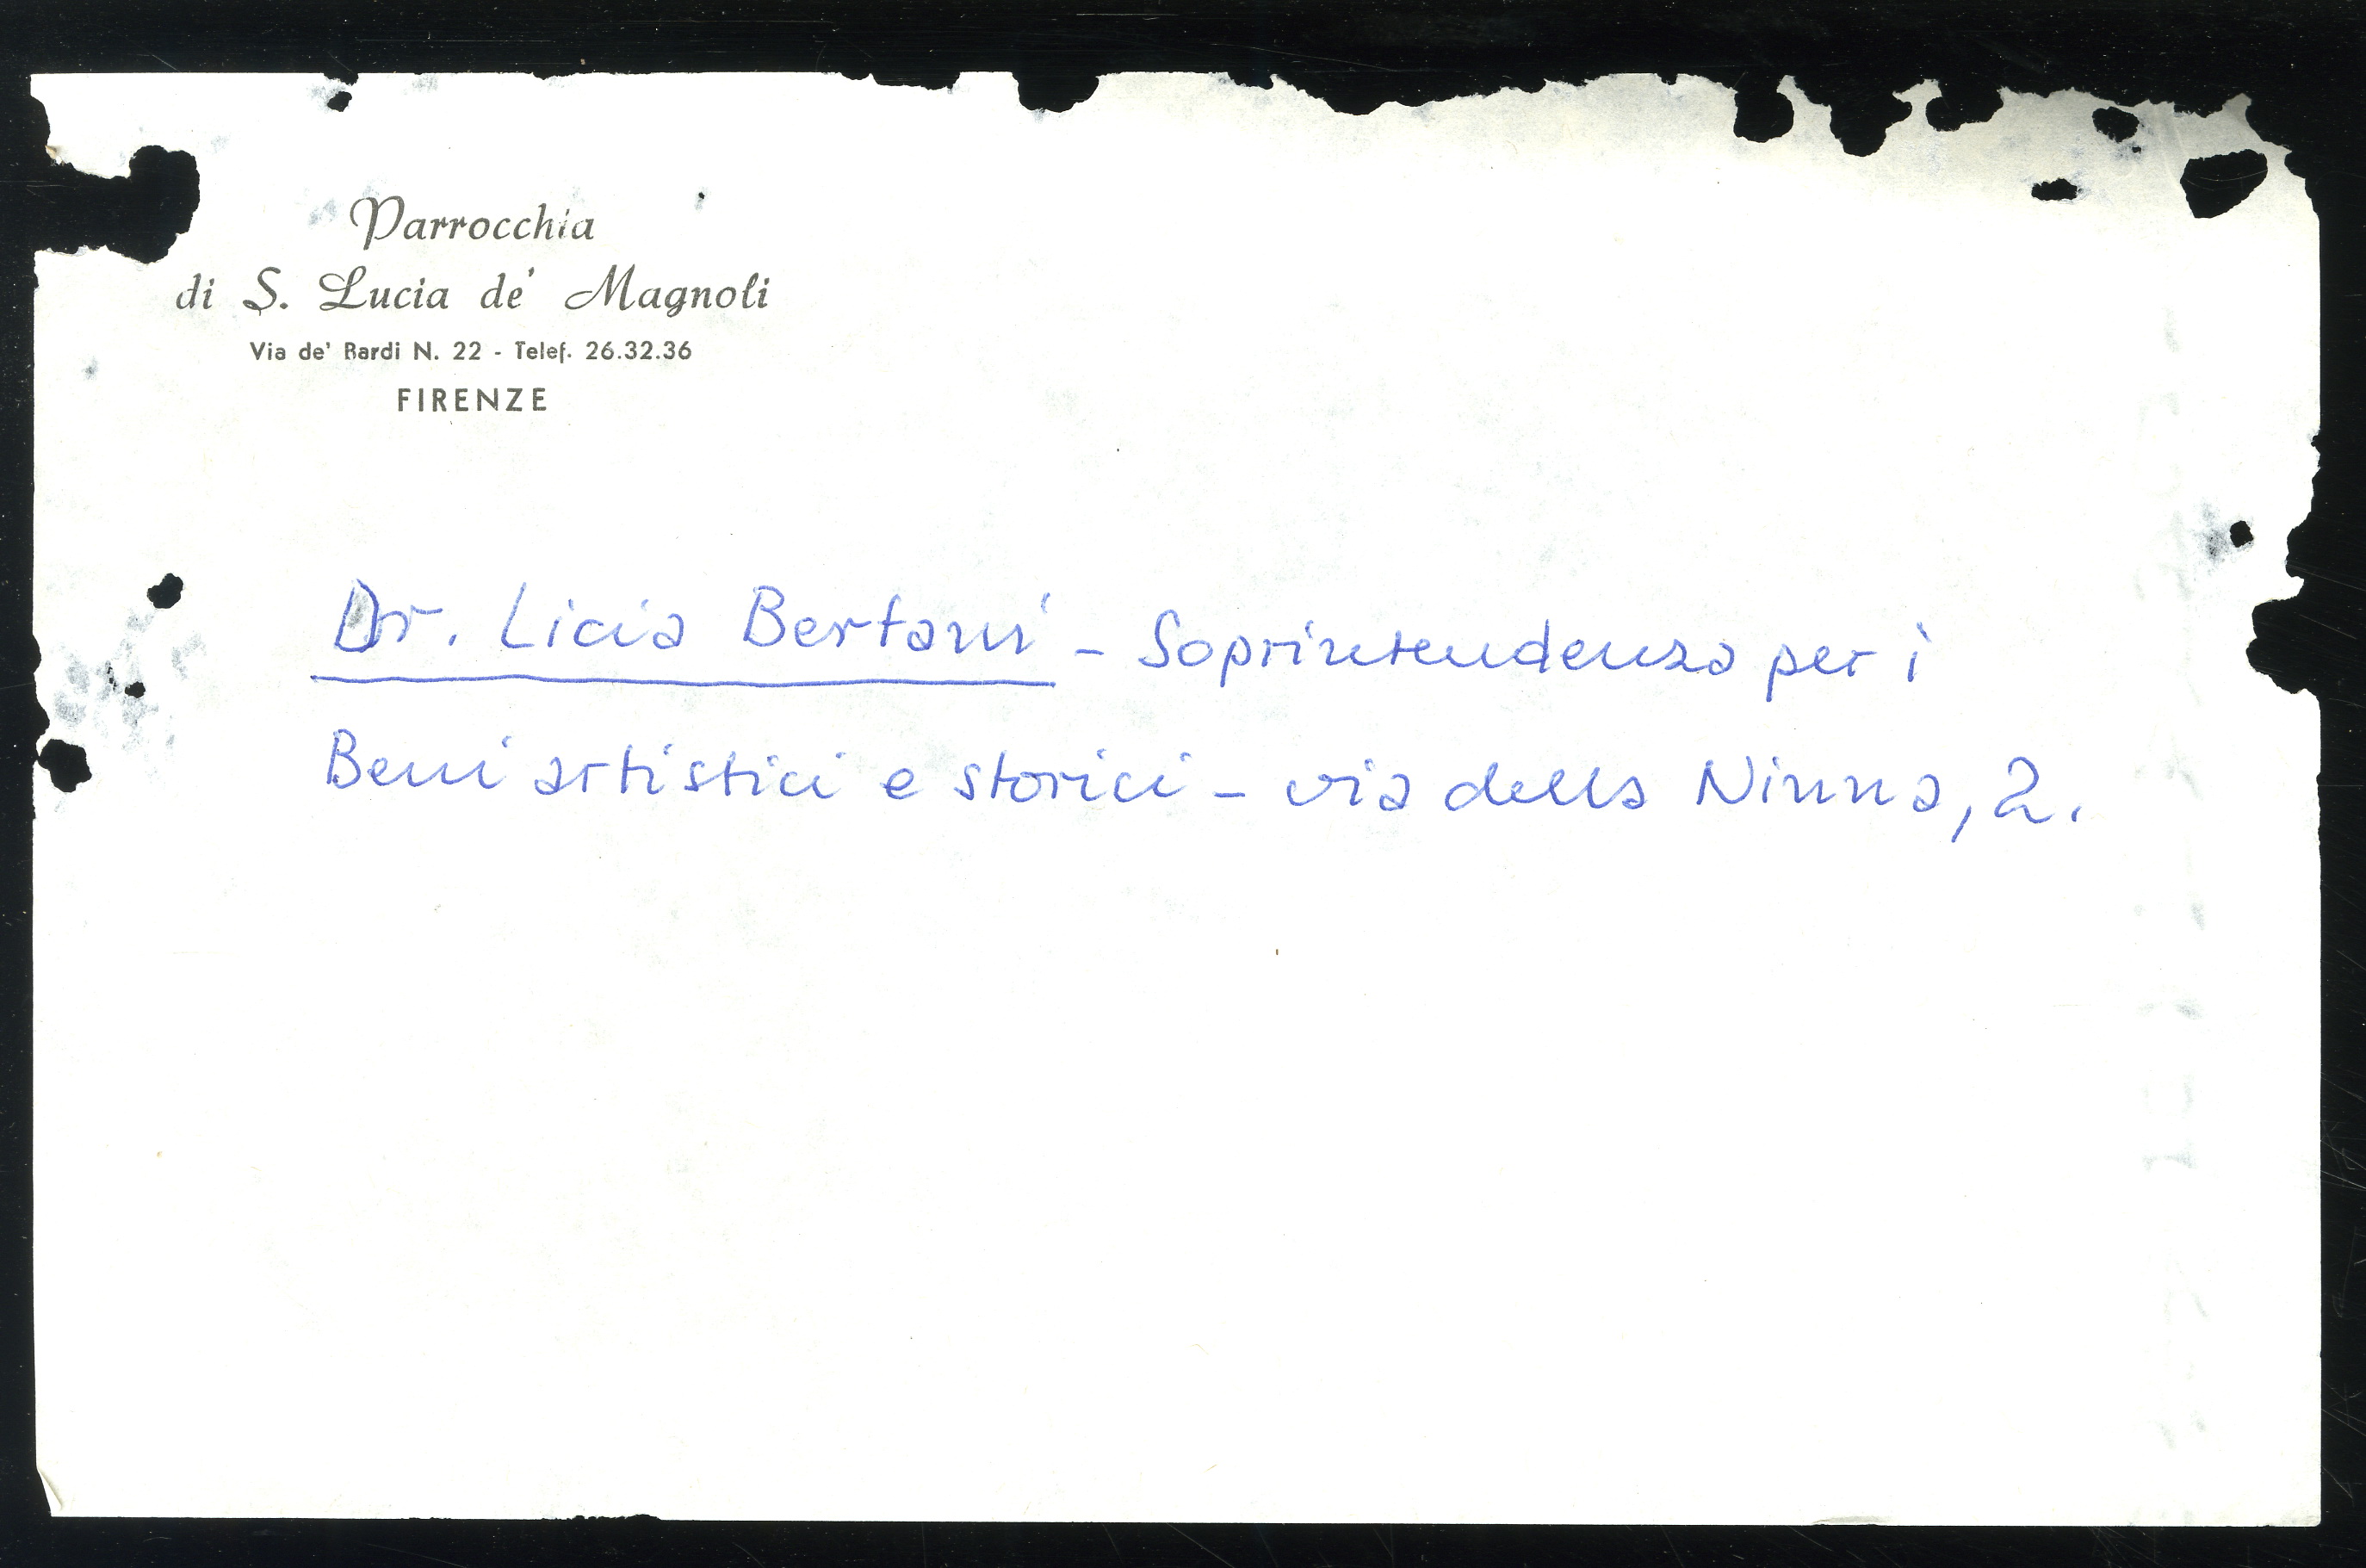 Parrocchia
di S. Lucia de' Magnoli
Via de' Bardi N. 22 - Telef. 26.32.36
FIRENZE
Dr. Licia Bertani - Soprintendenza per i
Beni artistici e storici - via della Ninna, 2.